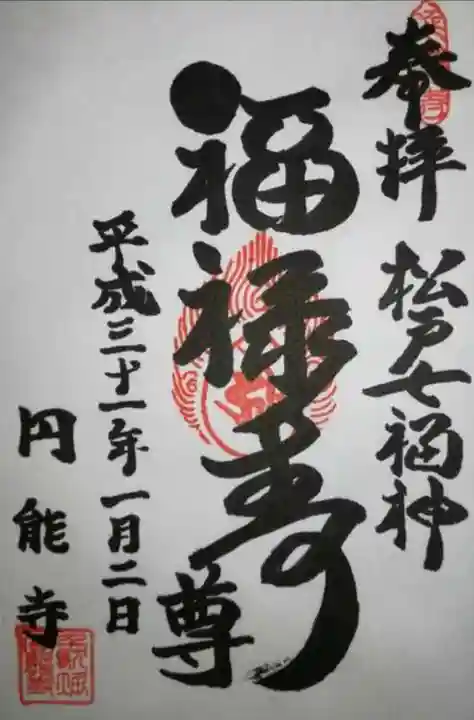 奉拝 松戸七福神
福禄寿尊
平成三十一年一月二日
円能寺